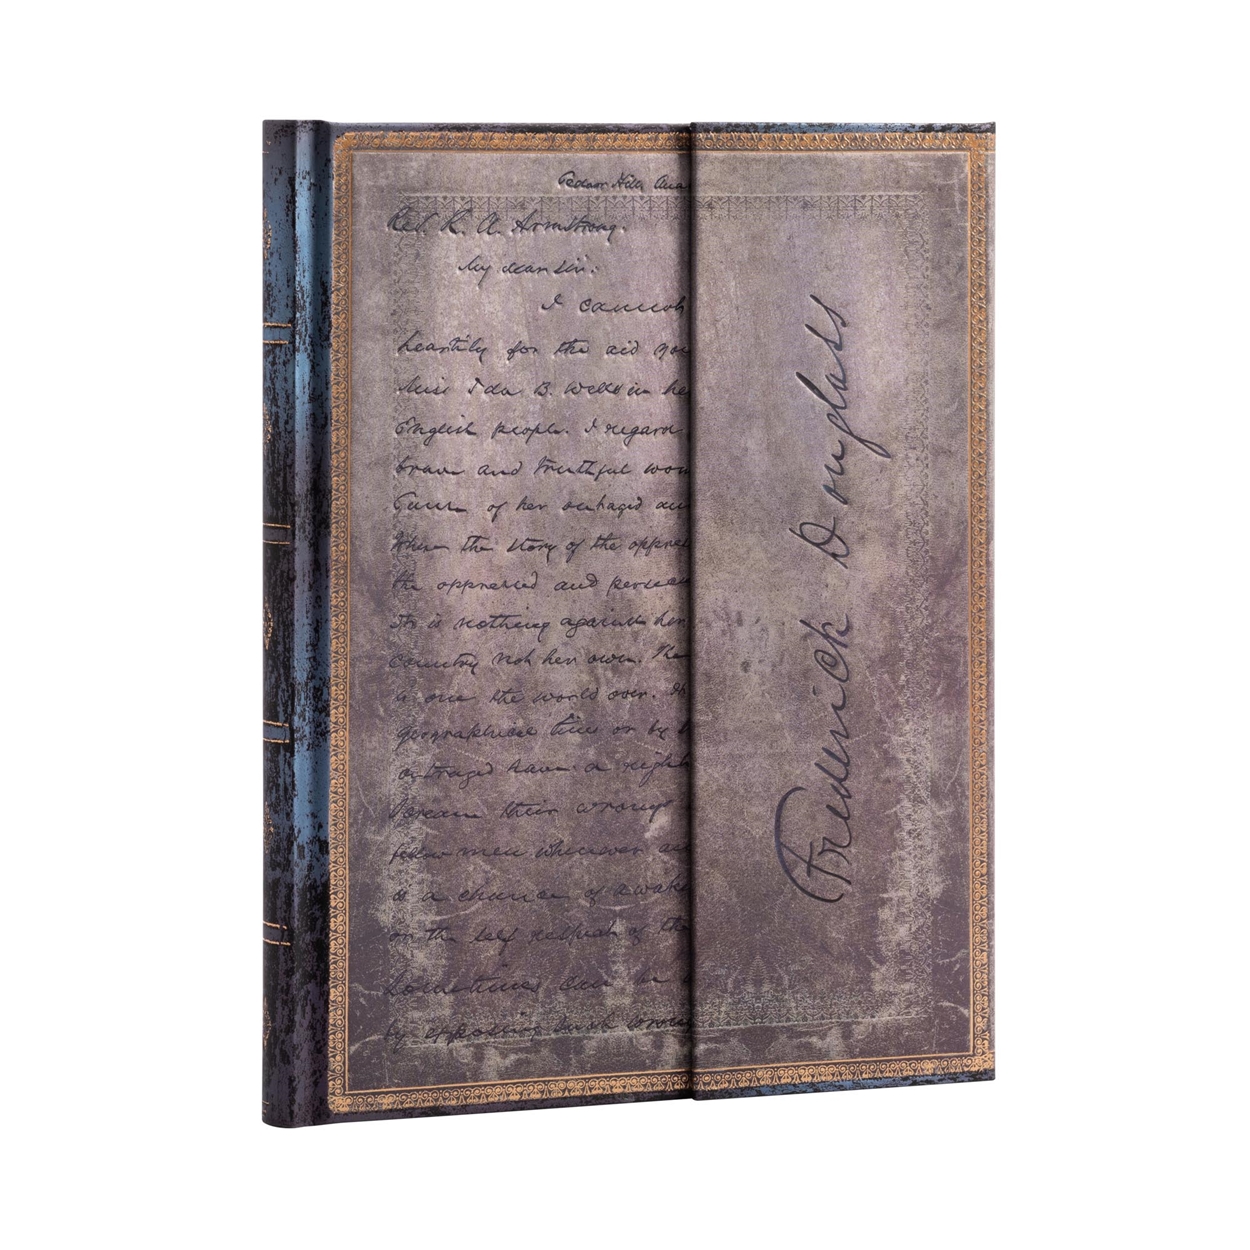 Cedar Hill, Ana
Rev. R. A. Armstrong.
My dear Sir:
I cannot
heartily for the aid you
Miss Ida B. Wells in he
English people. I regard
brave and truthful wom
of her outraged an
When the story of the oppres
the oppressed and persecu
It is nothing against her
country not her own. The
is one the world over.
geographical lines or by t
outraged have a right
their wrongs
fellow men wherever an
is a chance of awake
on the self respect of the
Sometimes can be
by opposing such wrong
Frederick Douglass